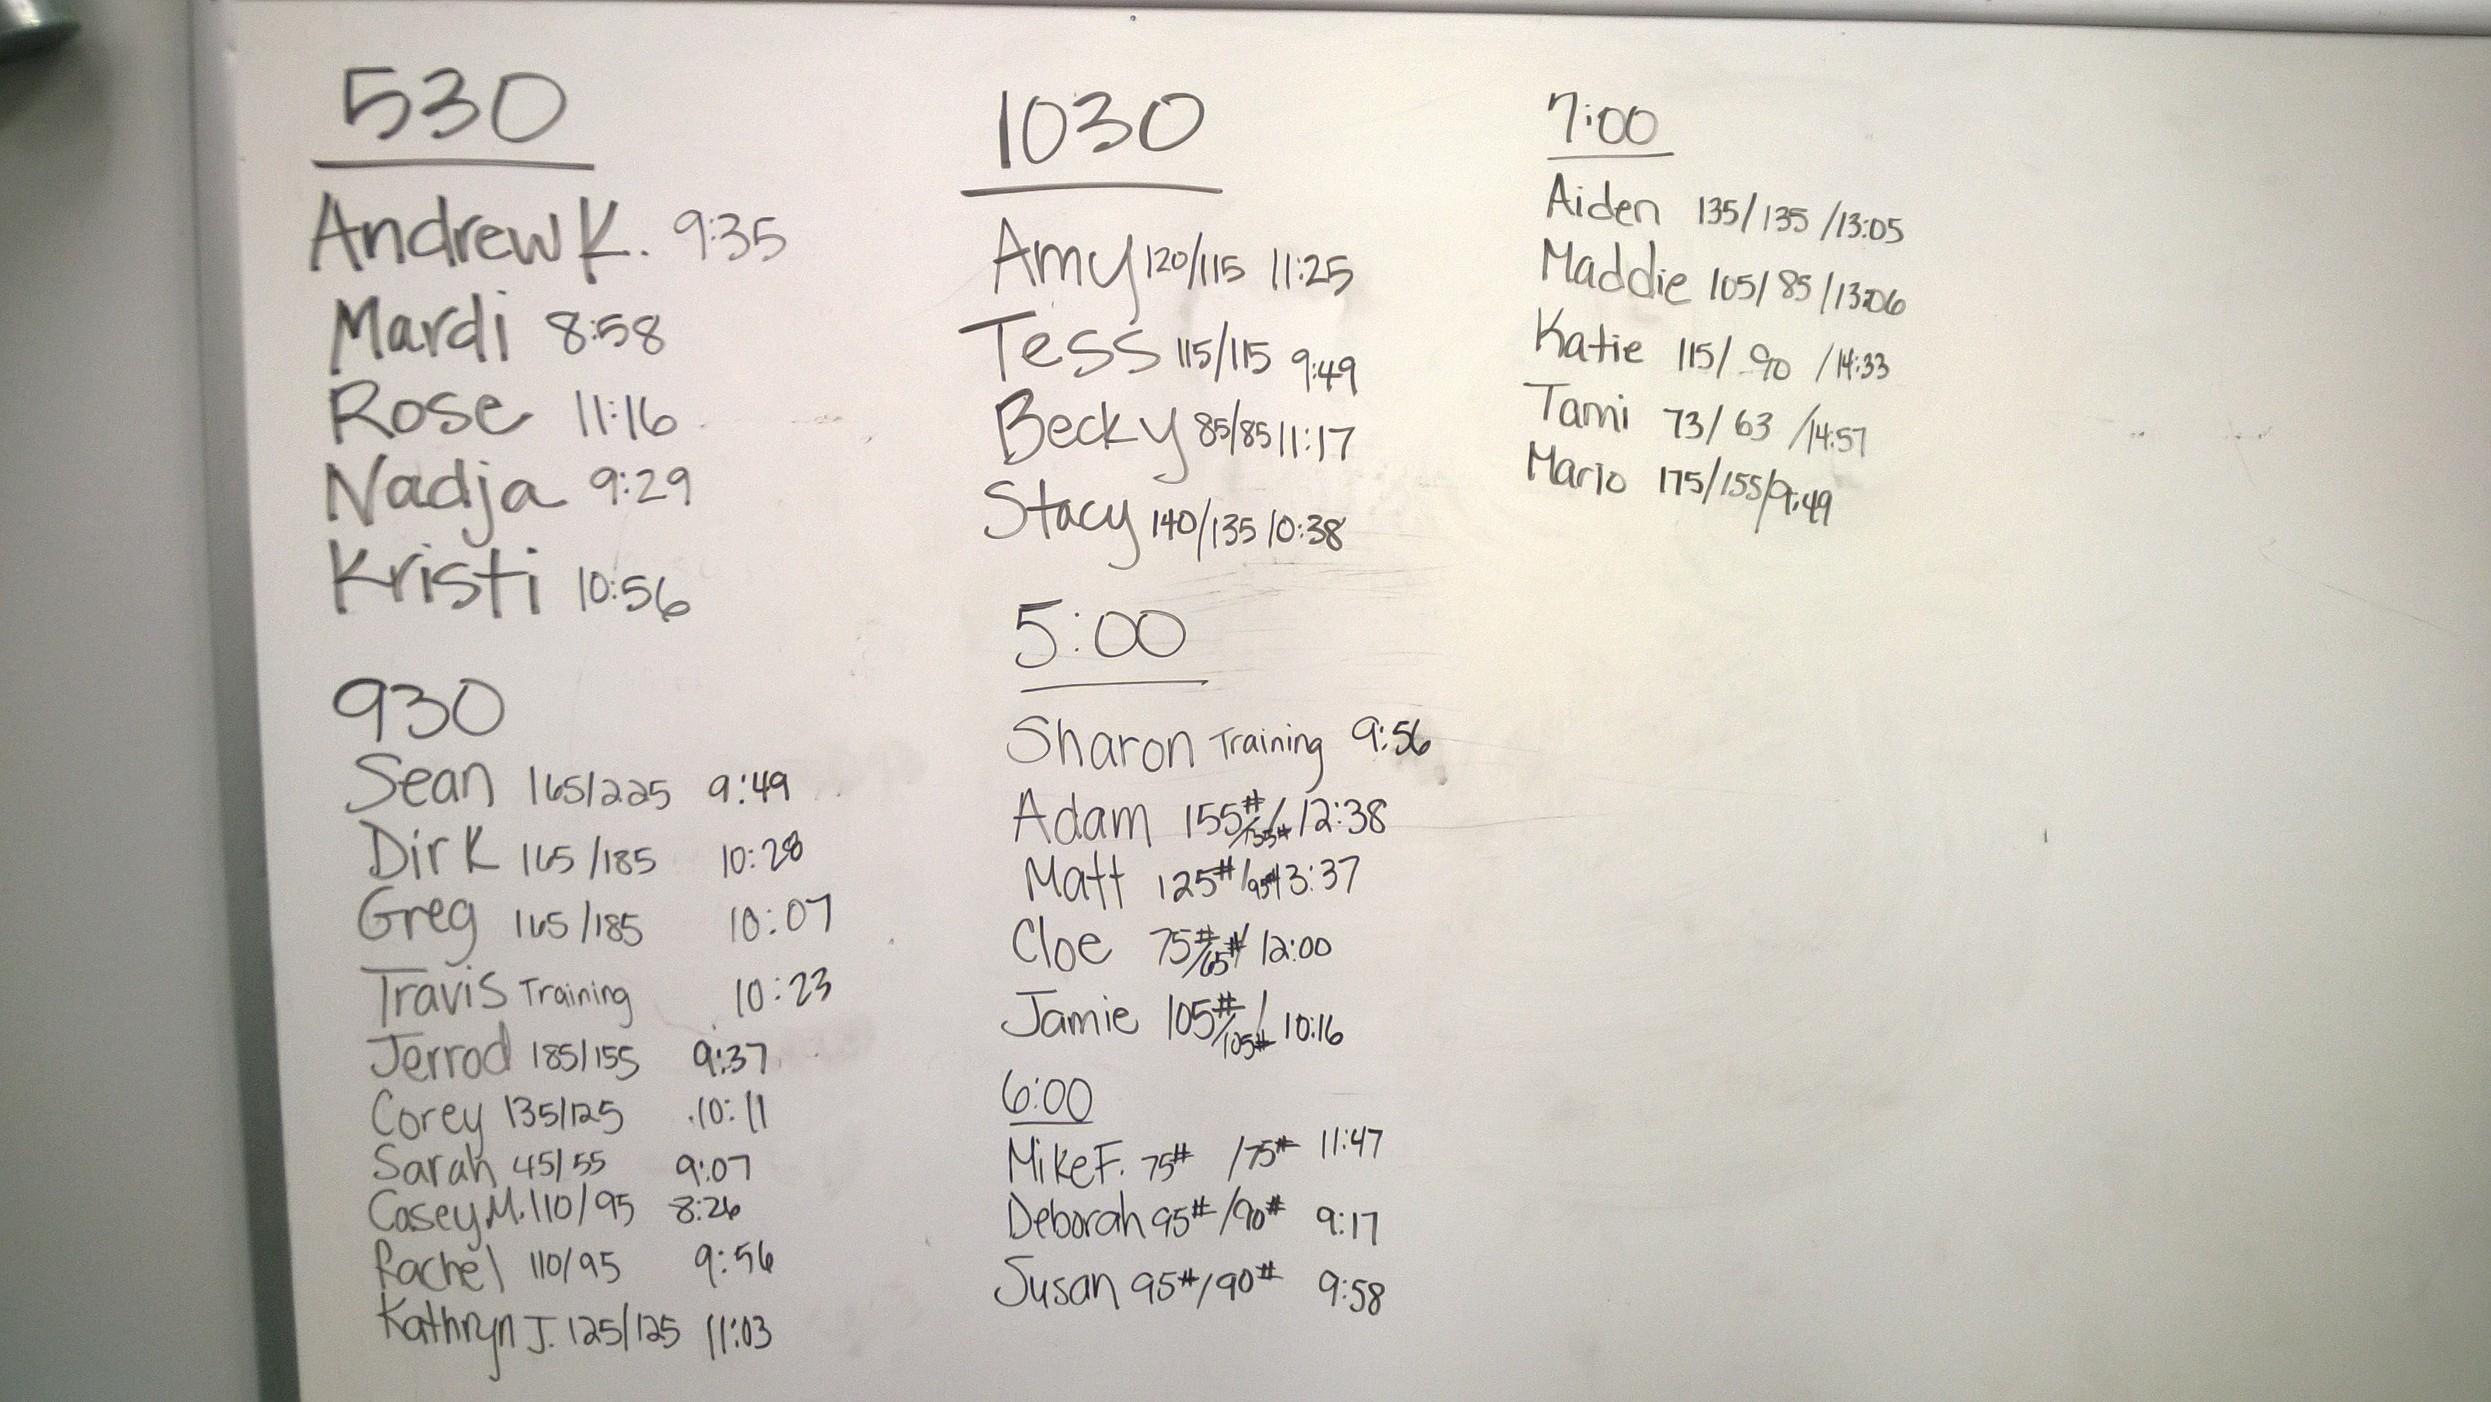 530
Andrew K. 9:35
Mardi 8:58
Rose 11:16
Nadja 9:29
Kristi 10:56
930
Sean 165/225 9:49
Dirk 165/185 10:28
Greg 165/185 10:07
Travis Training 10:23
Jerrod 185/155 9:37
Corey 135/125 10:11
Sarah 45/55 9:07
Casey M. 110/95 8:26
Rachel 110/95 9:56
Kathryn J. 125/125 11:03
1030
Amy 120/115 11:25
Tess 115/115 9:49
Becky 85/85 11:17
Stacy 140/135 10:38
5:00
Sharon Training 9:56
Adam 155#/135#/12:38
Matt 125#/95# 13:37
Cloe 75#/65#/12:00
Jamie 105#/105#/10:16
6:00
Mike F. 75# /75# 11:47
Deborah 95#/90# 9:17
Susan 95#/90# 9:58
7:00
Aiden 135/135 /13:05
Maddie 105/85 /13:06
Katie 115/90 /14:33
Tami 73/63 /14:57
Mario 175/155/9:49